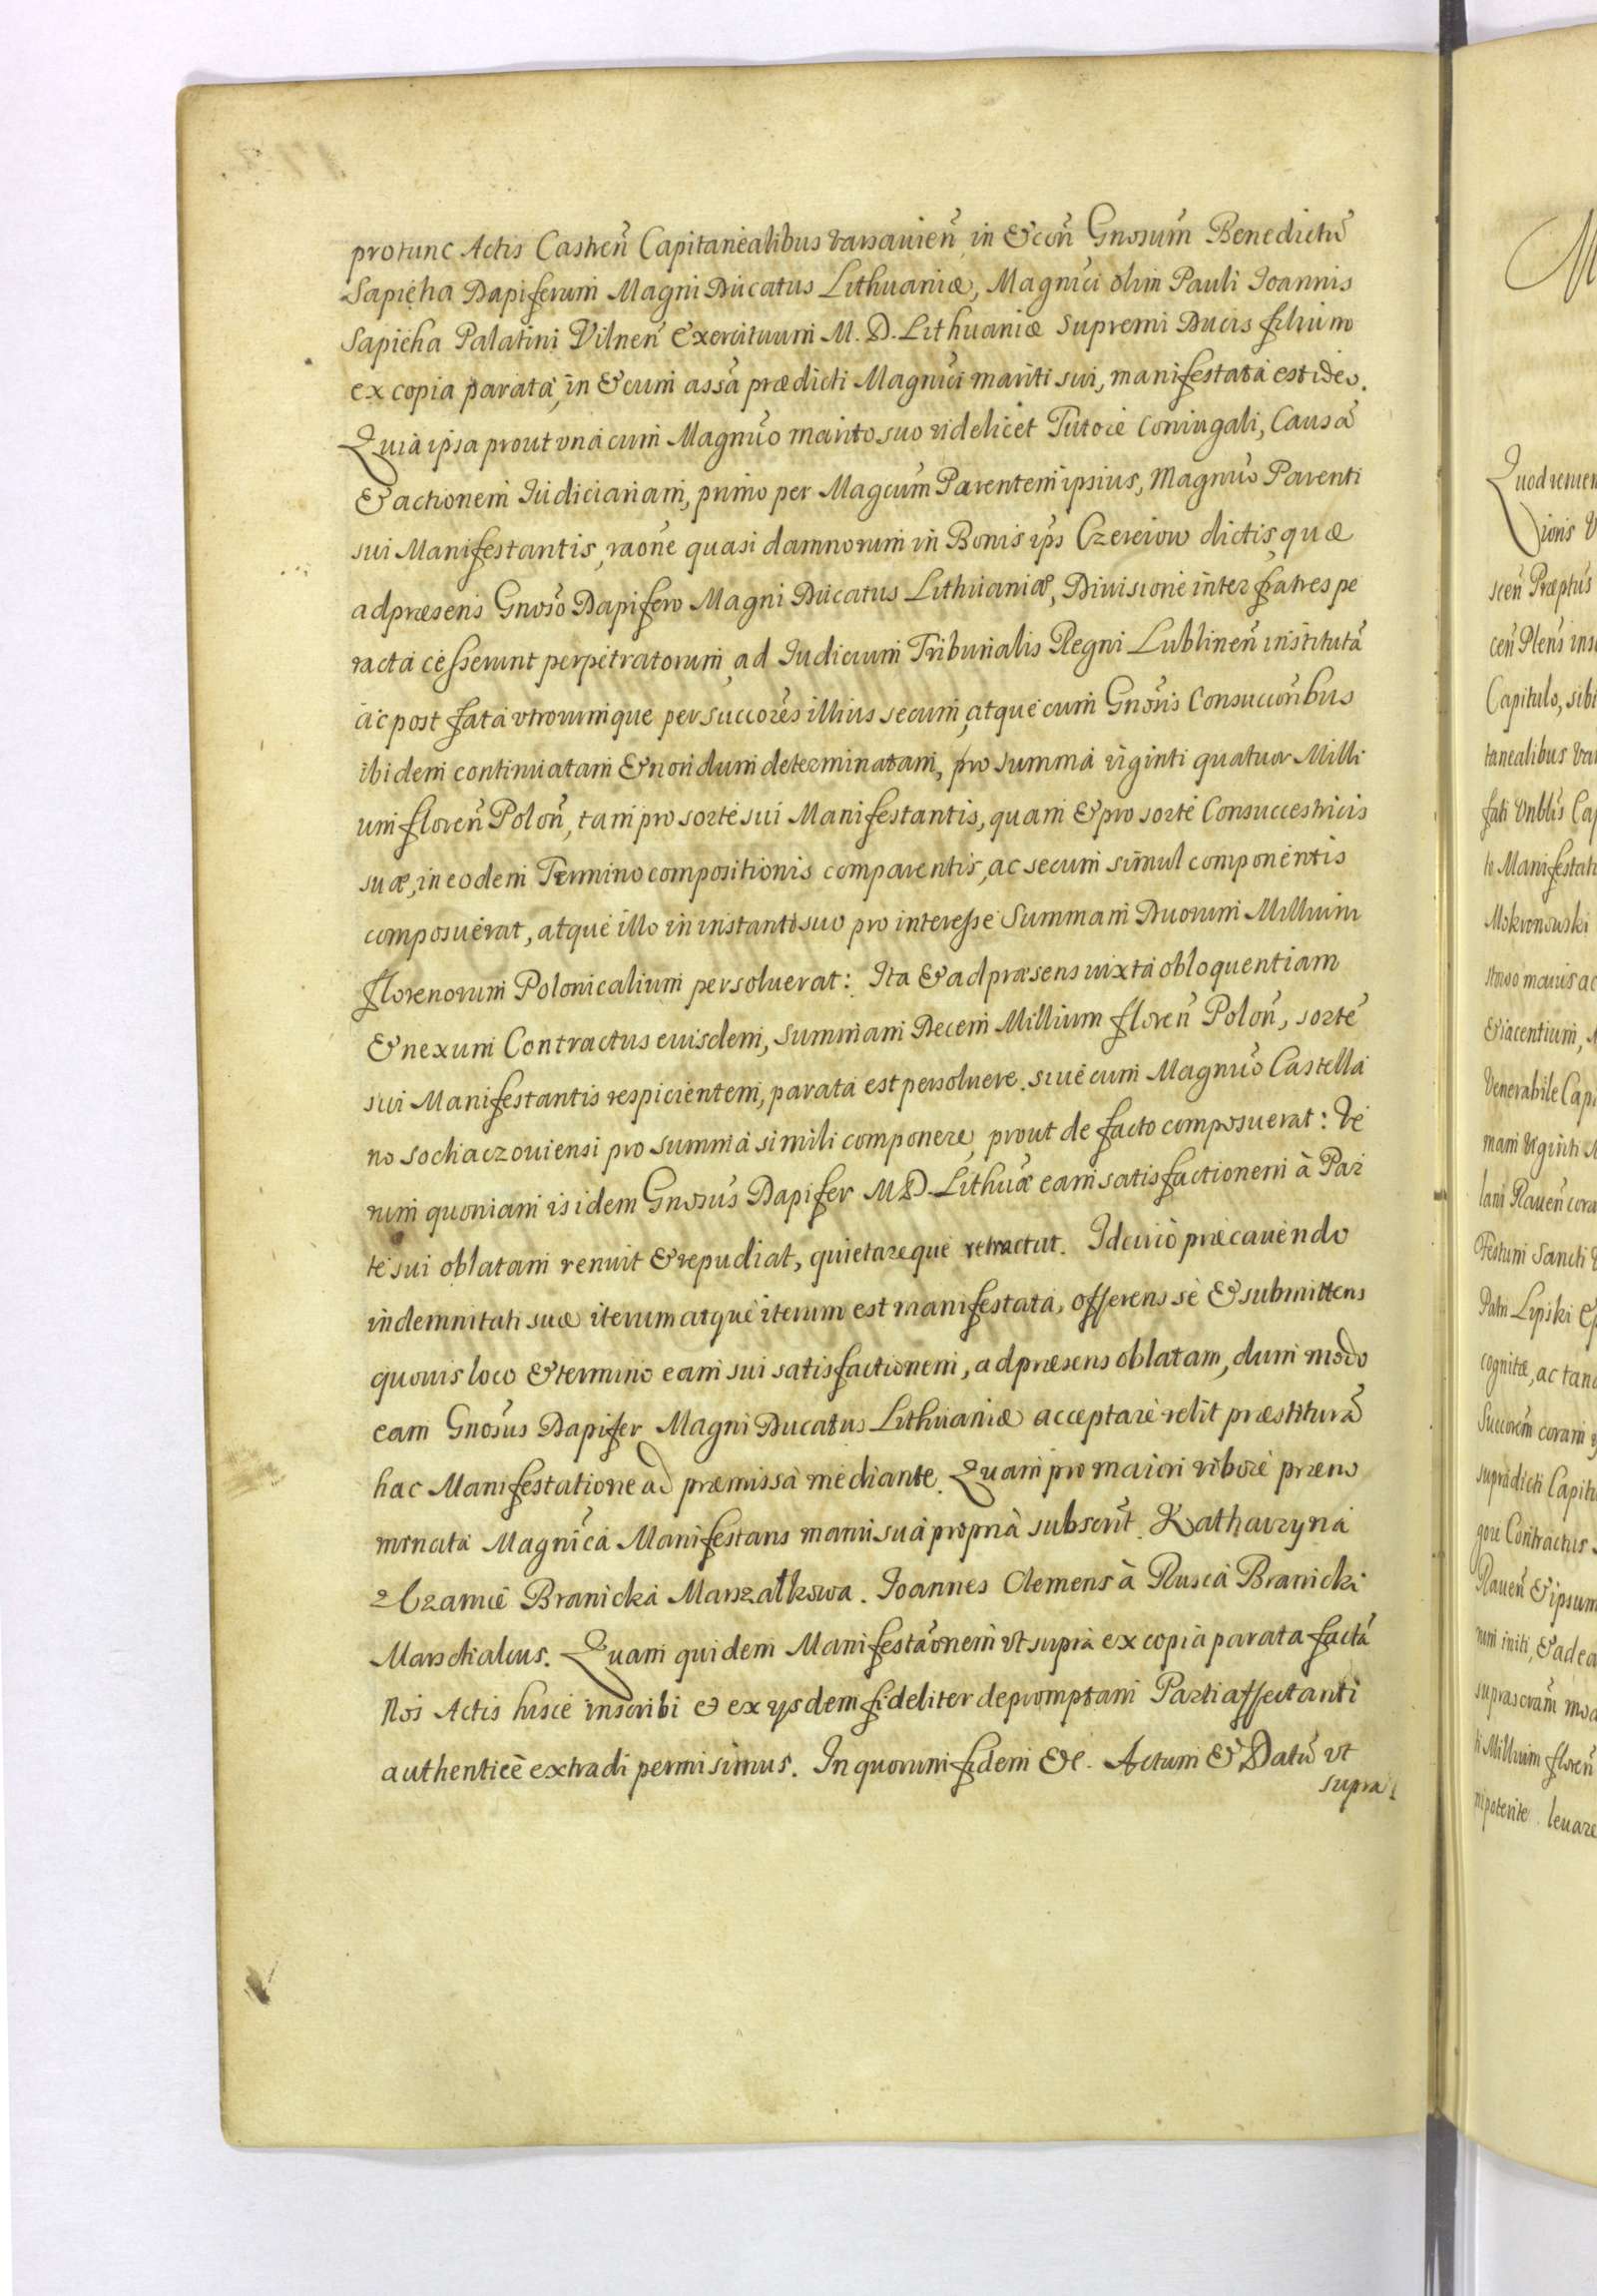 protunc Actis Castreñ Capitanealibus Varsavieñ in & coñ Gnosum Benedictũ
Sapieha Dapiferum Magni Ducatus Lithuaniæ, Magnici olim Pauli Ioannis
Sapieha Palatini Vilneñ Exercituum M. D. Lithuaniæ Supremi Ducis filium
ex copia parata, in & cum assã prædicti Magnici mariti sui, manifestata est ideo.
Quia ipsa prout vna cum Magnico marito suo videlicet Tutore Coniugali, Causã
& actionem Iudiciariam, primo per Magcum Parentem ipsius, Magnico Parenti
sui Manifestantis, raõne quasi damnorum in Bonis ips Czereiow dictis, quæ
ad præsens Gnoso Dapifero Magni Ducatus Lithuaniæ, Diuisione inter fratres pe
racta cesserunt perpetratorum, ad Iudicium Tribunalis Regni Lublineñ institutã
ac post fata vtrorumque per succores illius secum, atque cum Gnosis Consuccoribus
ibidem continuatam & nondum determinatam, pro summa viginti quatuor Milli
um floreñ Poloñ, tam pro sorte sui Manifestantis, quam & pro sorte Consuccestricis
suæ, in eodem Termino compositionis comparentis, ac secum simul componentis
composuerat, atque illo in instanti suo pro interesse Summam Duorum Millium
florenorum Polonicalium persoluerat: Ita & ad præsens iuxta obloquentiam
& nexum Contractus eiusdem, summam Decem Millium floreñ Poloñ, sorte
sui Manifestantis respicientem, parata est persoluere. siue cum Magnico Castella
no sochaczouiensi pro summa simili componere, prout de facto composuerat: Ve
rum quoniam is idem Gnosus Dapifer M D. Lithuæ eam satisfactionem à Par
te sui oblatam renuit & repudiat, quietareque retractat. Idcirco præcauendo
indemnitati suæ iterum atque iterum est manifestata, offerens se & submittens
quouis loco & termino eam sui satisfactionem, ad præsens oblatam, dum modo
eam Gnosus Dapifer Magni Ducatus Lithuaniæ acceptare velit præstiturã
hac Manifestatione ad præmissa mediante. Quam pro maiori robore præno
minata Magnica Manifestans manu sua propria subscrit. Katharzyna
z Czarnce Branicka Marszałkowa. Joannes Clemens à Ruscza Branicki
Marschalcus. Quam quidem Manifestaõnem vt supra ex copia parata factã
Nos Actis hisce inscribi & ex ijsdem fideliter depromptam Parti affectanti
authenticè extradi permisimus. In quorum fidem &c. Actum & Datũ vt
supra